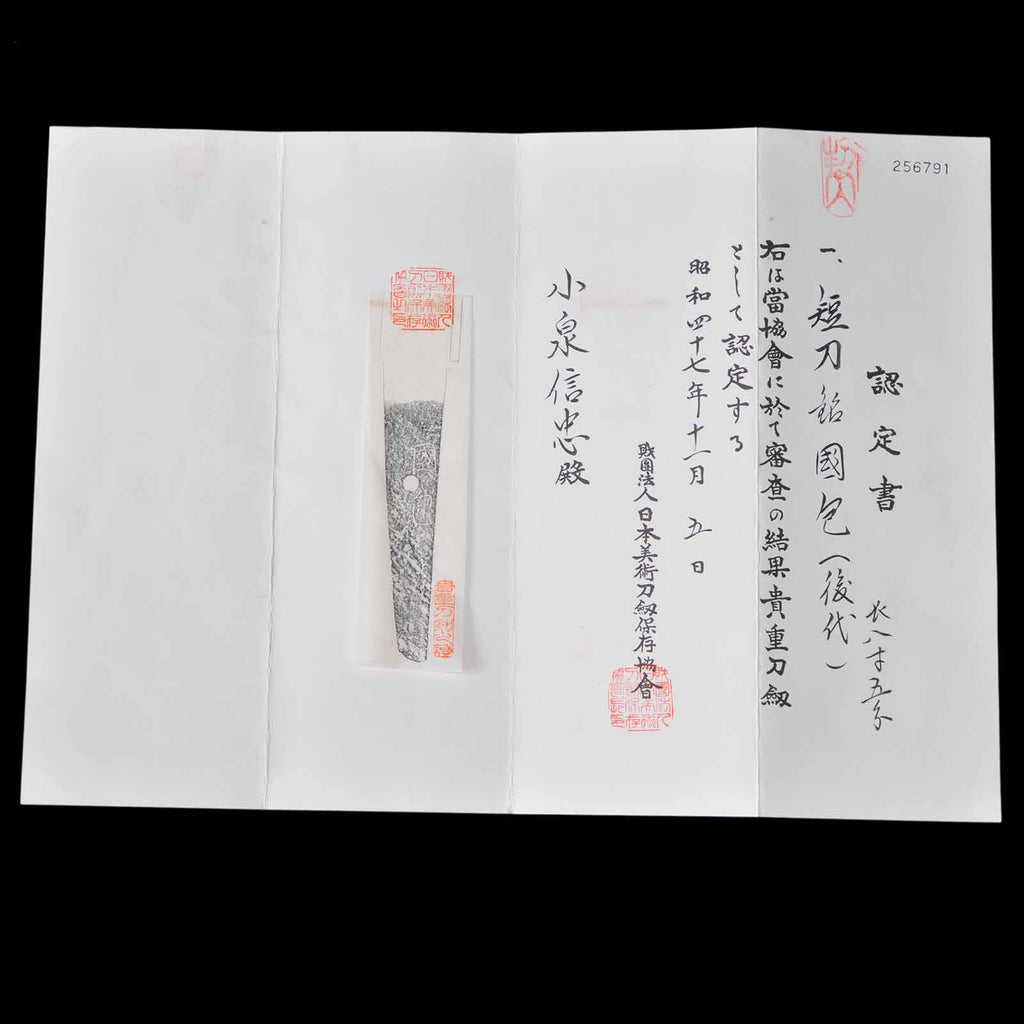 256791
認定書
一、短刀 銘 國包(後代)
長八寸五分
右は當協會に於て審査の結果貴重刀劔
として認定する
昭和四十七年十一月 五 日
財團法人日本美術刀劔保存協會
小泉信忠殿
國包